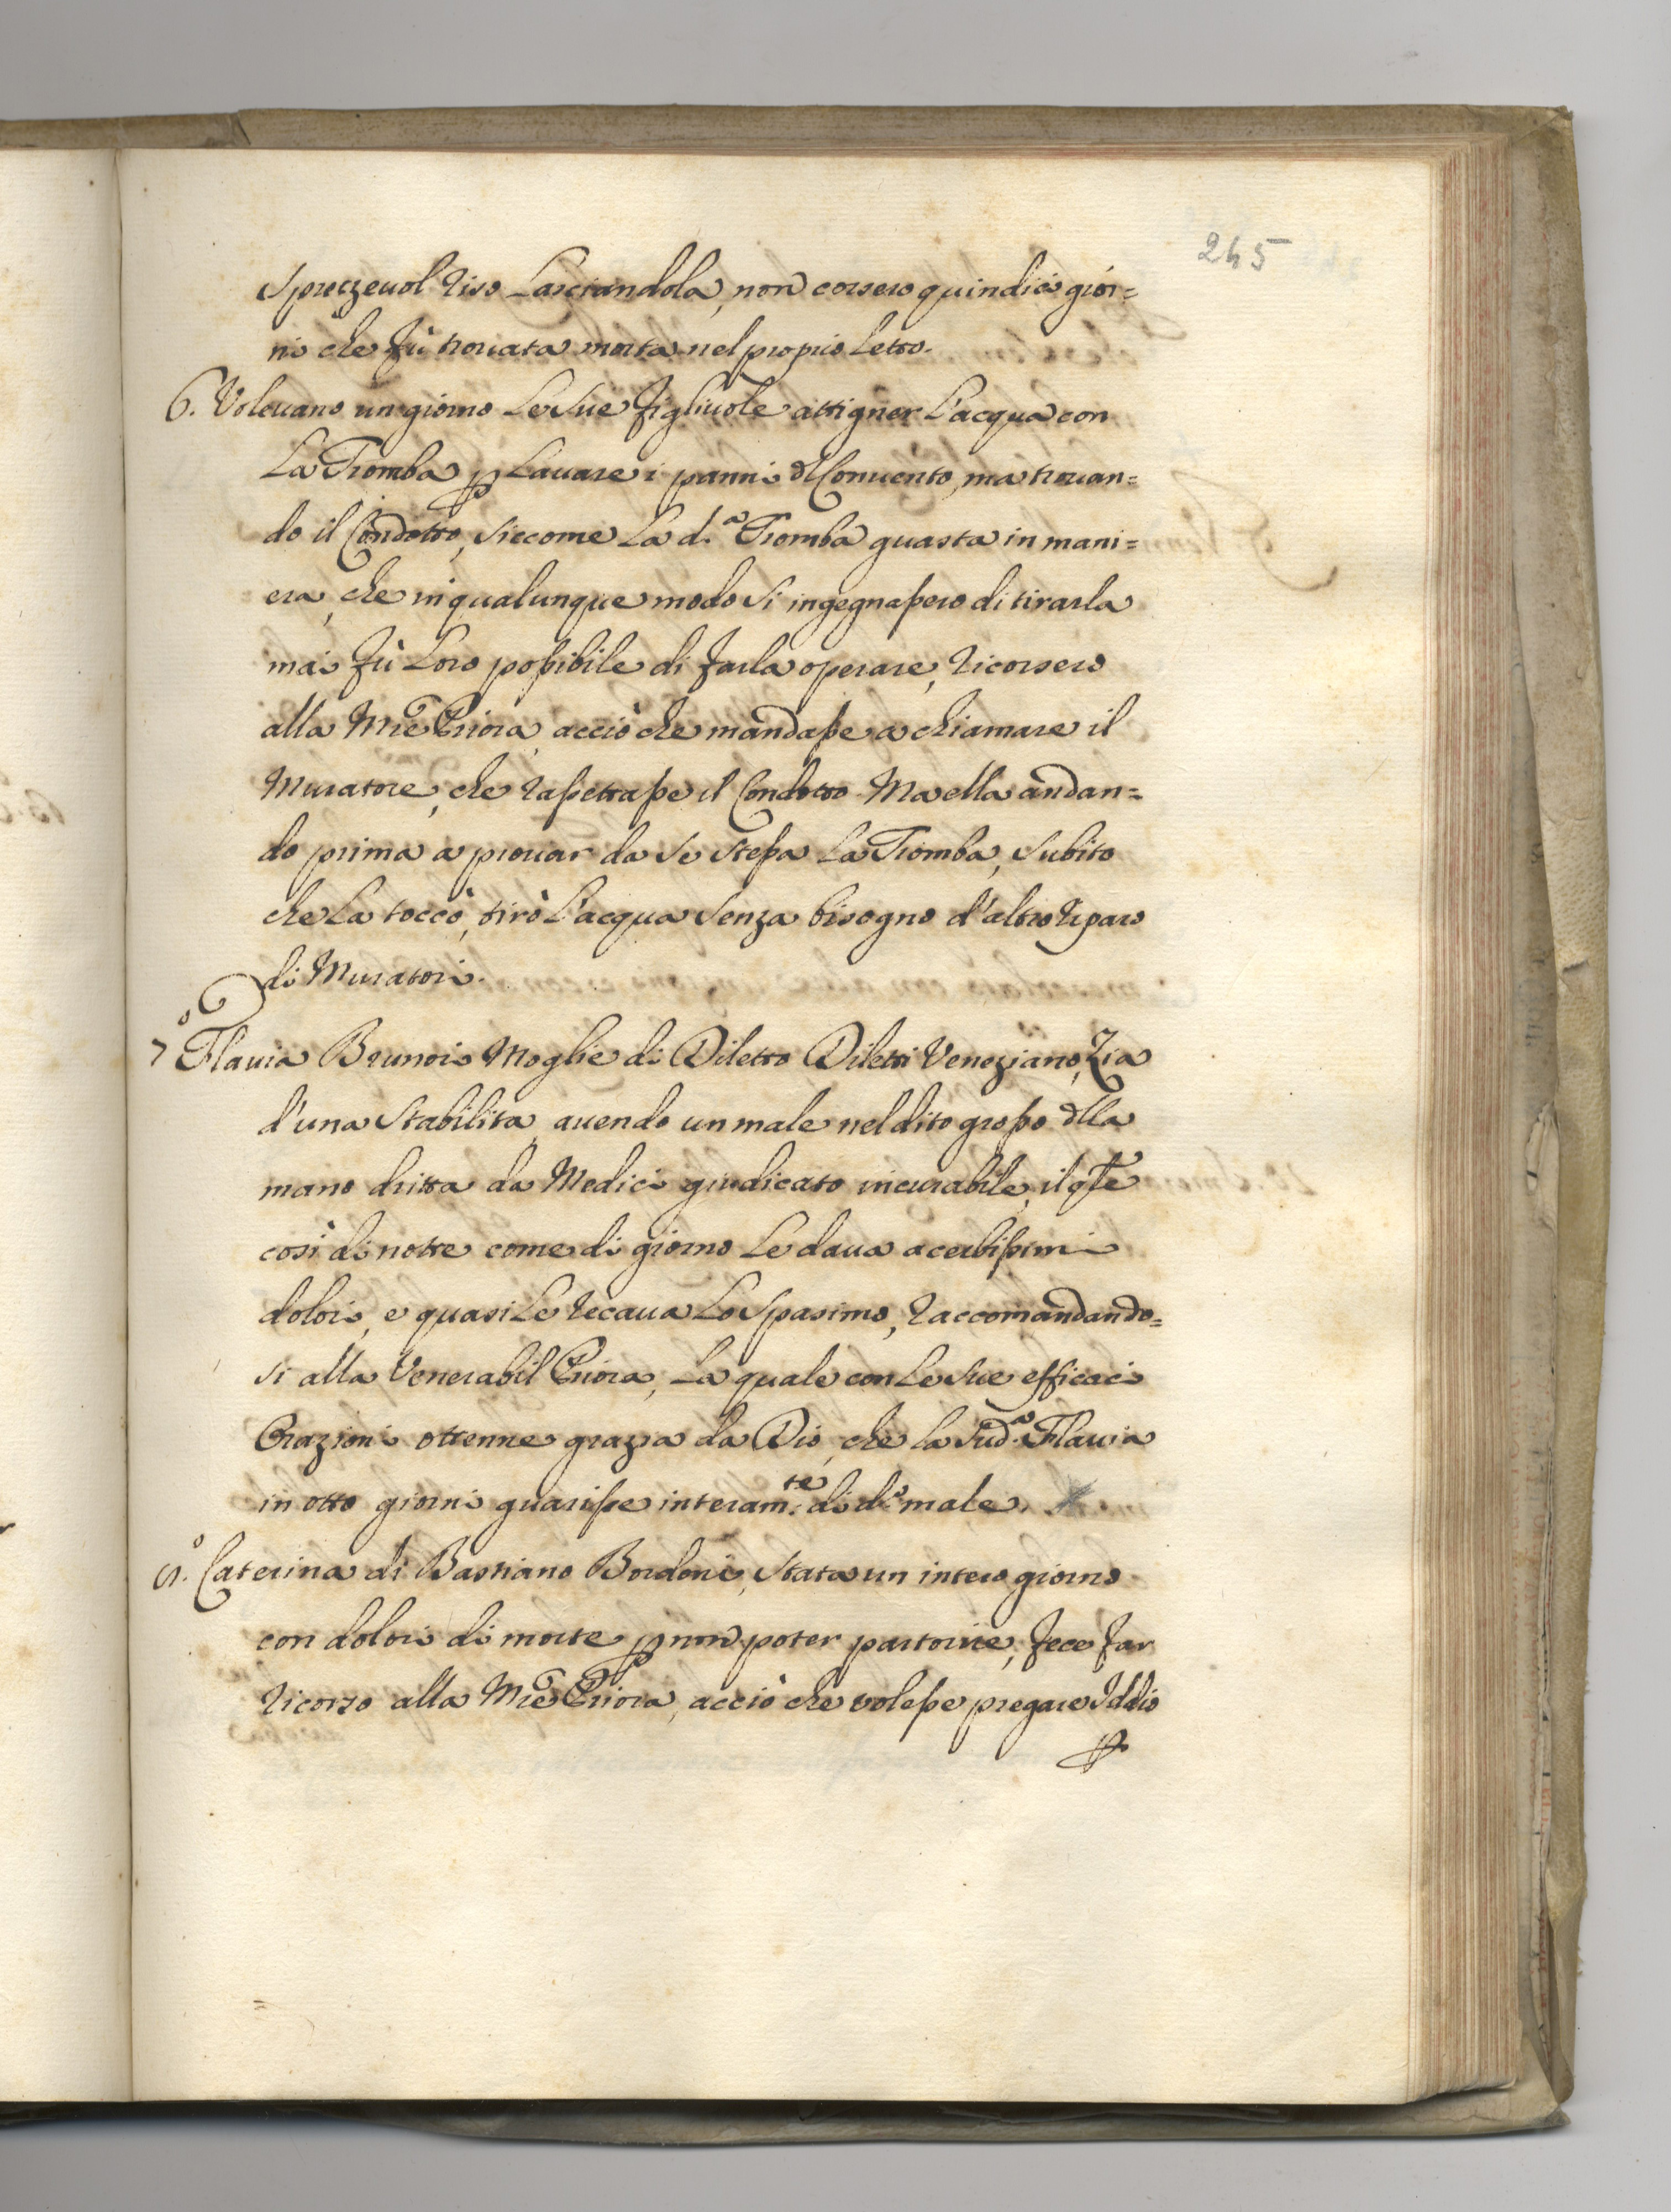 245
sprezzevol riso Lasciandola, non corsero quindici gior=
ni che fù trovata morta nel proprio Letto.
6. Volevano un giorno Le Sue figliuole attigner L'acqua con
La Tromba p Lavare i panni dl Convento, ma trovan=
do il Condotto, siccome La d.ª Tromba guasta in mani=
era, che in qualunque modo si ingegnassero di tirarla
mai fù Loro possibile di farla operare, ricorsero
alla Mre Priora, acciò che mandasse a chiamare il
Muratore, che rassettasse il Condotto. Ma ella andan=
do prima a provar da se stessa La Tromba, subito
che La toccò, tirò L'acqua senza bisogno d'altro riparo
di Muratori.
7º Flavia Brunori Moglie di Diletto Diletti Veneziano, Zia
d'una Stabilita, avendo un male nel dito grosso dlla
mano dritta da Medici giudicato incurabile, il qle
così di notte come di giorno Le dava acerbissimi
dolori, e quasi Le recava Lo Spasimo, raccomandando=
si alla Venerabil Priora, La quale con Le Sue efficaci
Orazioni ottenne grazia da Dio, che la Sud.ª Flavia
in otto giorni guarisse interam.te di d.º male.
Caterina di Bastiano Bordoni, Stata un intero giorno
con dolori di morte p non poter partorire, fece far
ricorso alla Mre Priora, acciò che volesse pregare Iddio
p